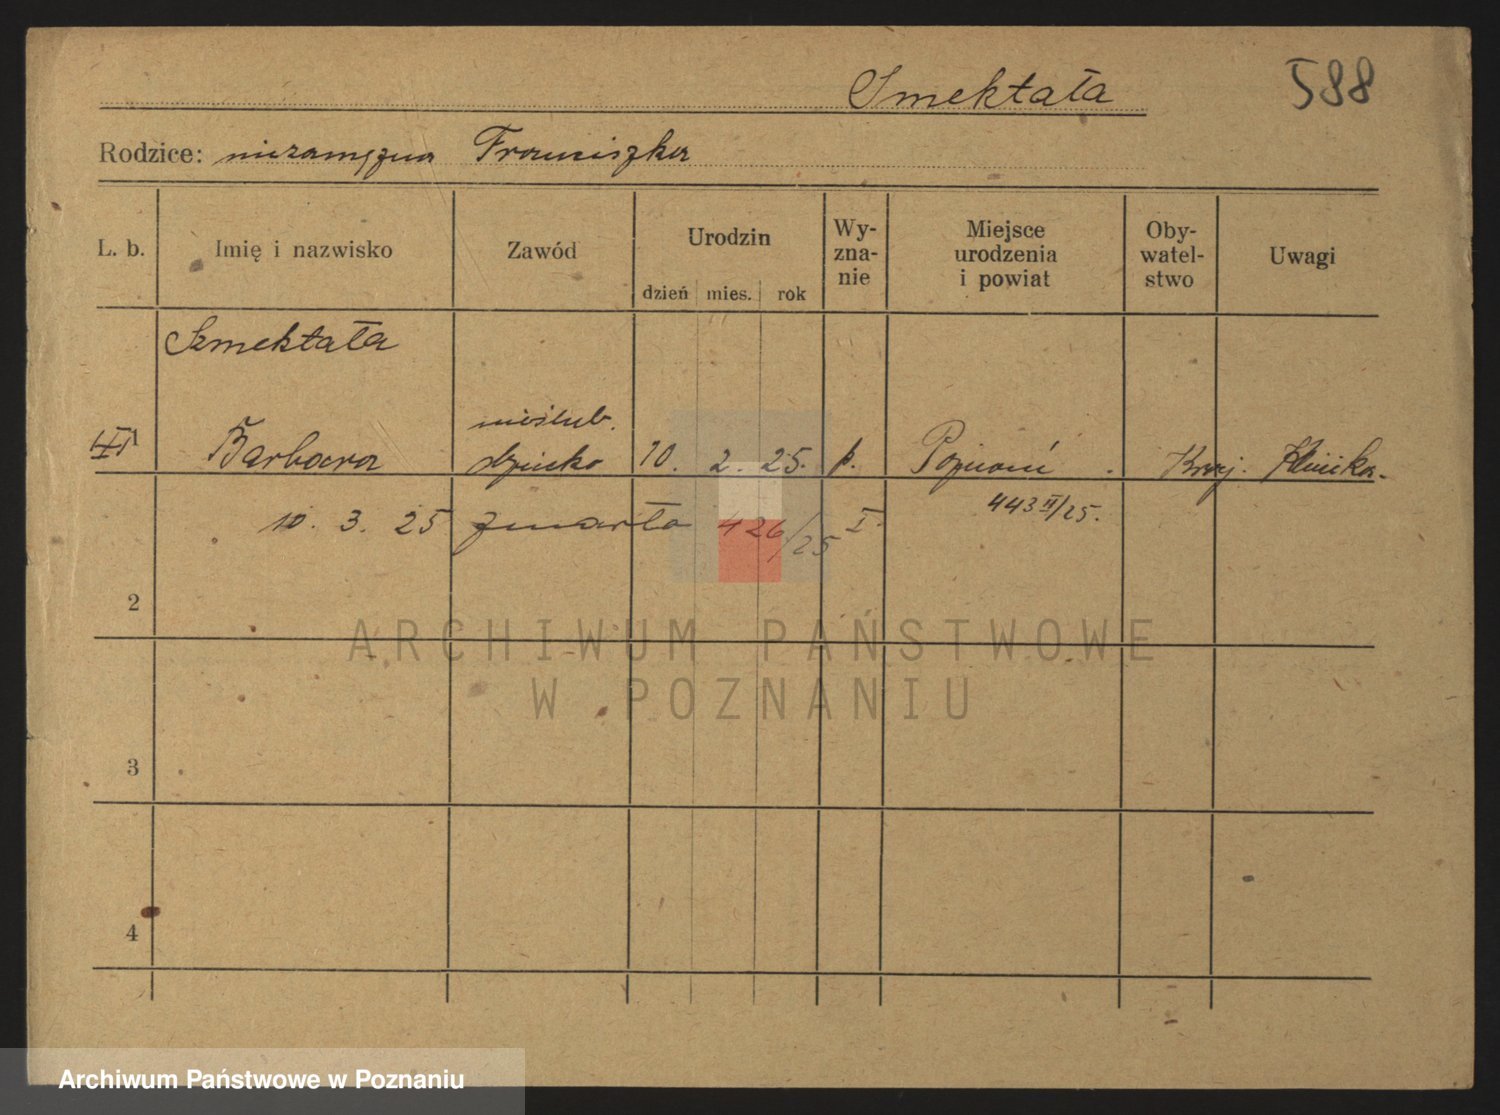 Smektała
588
Rodzice: niezamężna Franciszka
L. b. Imię i nazwisko Zawód Urodzin dzień mies. rok Wy-zna-nie Miejsce urodzenia i powiat Oby-watel-stwo Uwagi
Szmektała
nieślub.
Barbara dziecko 10. 2. 25. k. Poznań . Kraj. Klinika.
443 II/25.
10. 3. 25 zmarło 426/25 I.
2
3
4
ARCHIWUM PAŃSTWOWE
W POZNANIU
Archiwum Państwowe w Poznaniu